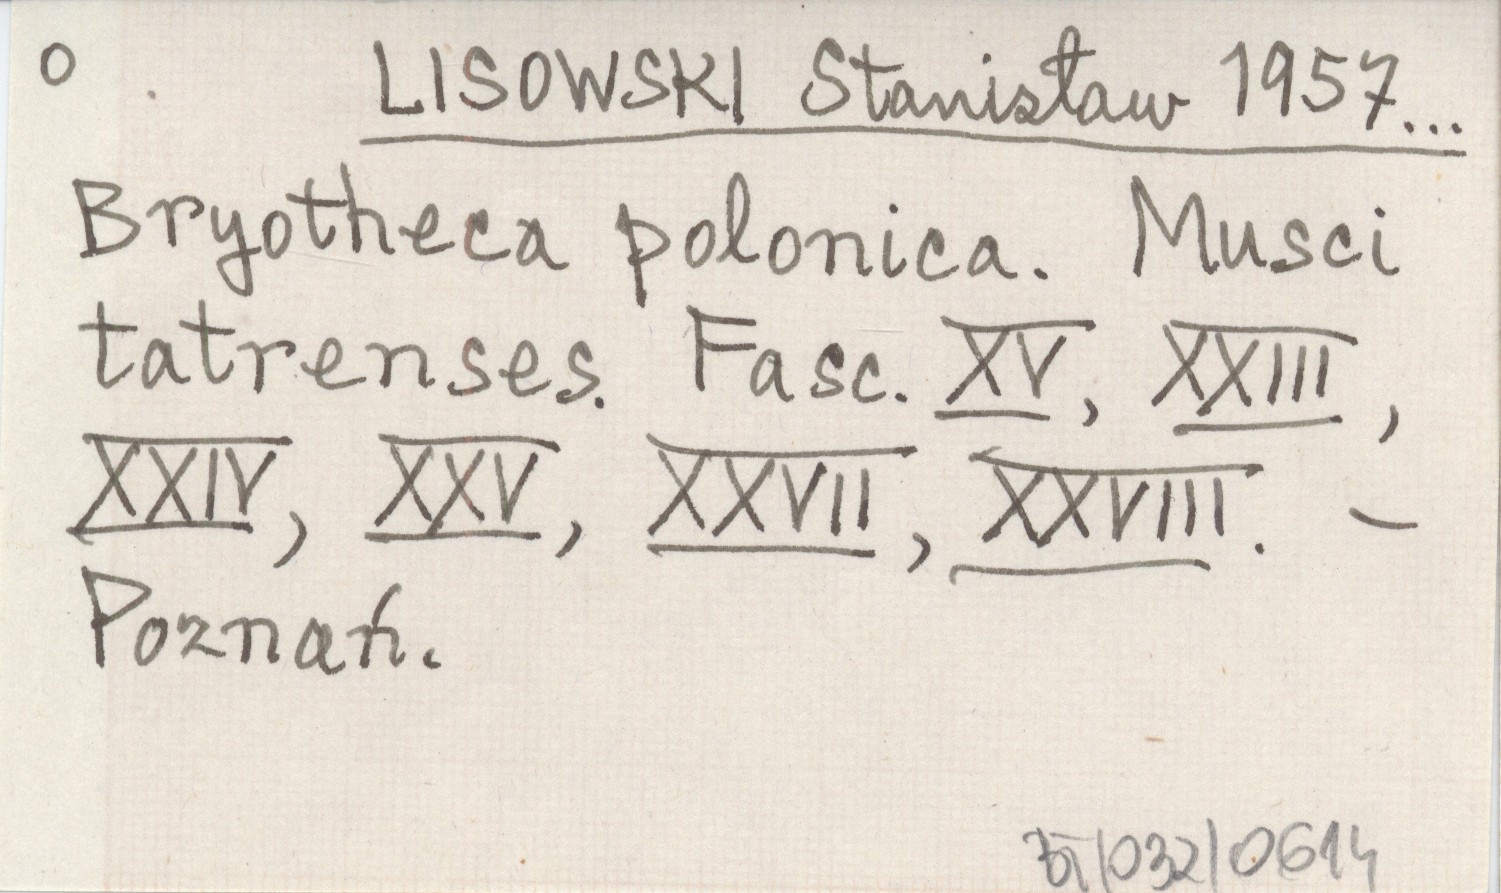 o LISOWSKI Stanisław 1957...
Bryotheca polonica. Musci
tatrenses. Fasc. XV, XXIII,
XXIV, XXV, XXVII, XXVIII. –
Poznań.
/032/0614